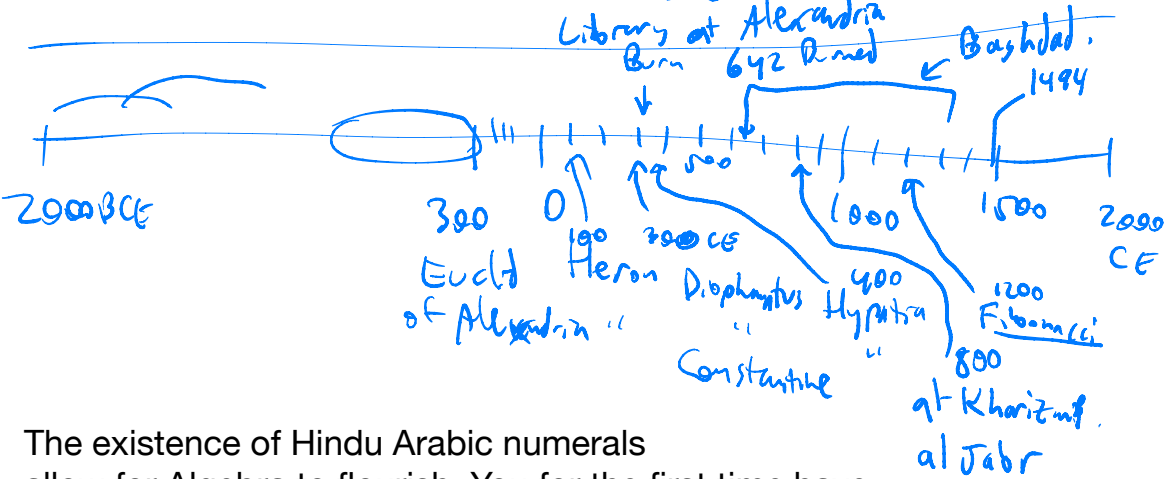 Library at Alexandria
Burn 642 Burned
Baghdad.
1494
500
2000BCE
300
0
100
300 CE
1000
1500
2000
CE
Euclid
of Alexandria
Heron
"
Diophantus
"
Constantine
400
Hypatia
"
1200
Fibonacci
800
al Khorizmi.
al Jabr
The existence of Hindu Arabic numerals